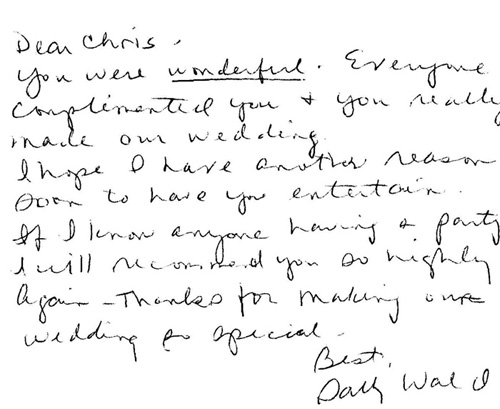 Dear Chris,
You were wonderful. Everyone
complimented you + you really
made our wedding.
I hope I have another reason
soon to have you entertain.
If I know anyone having a party
I will recommend you so highly
Again - Thanks for making our
wedding so special.
Best,
Sally Wald